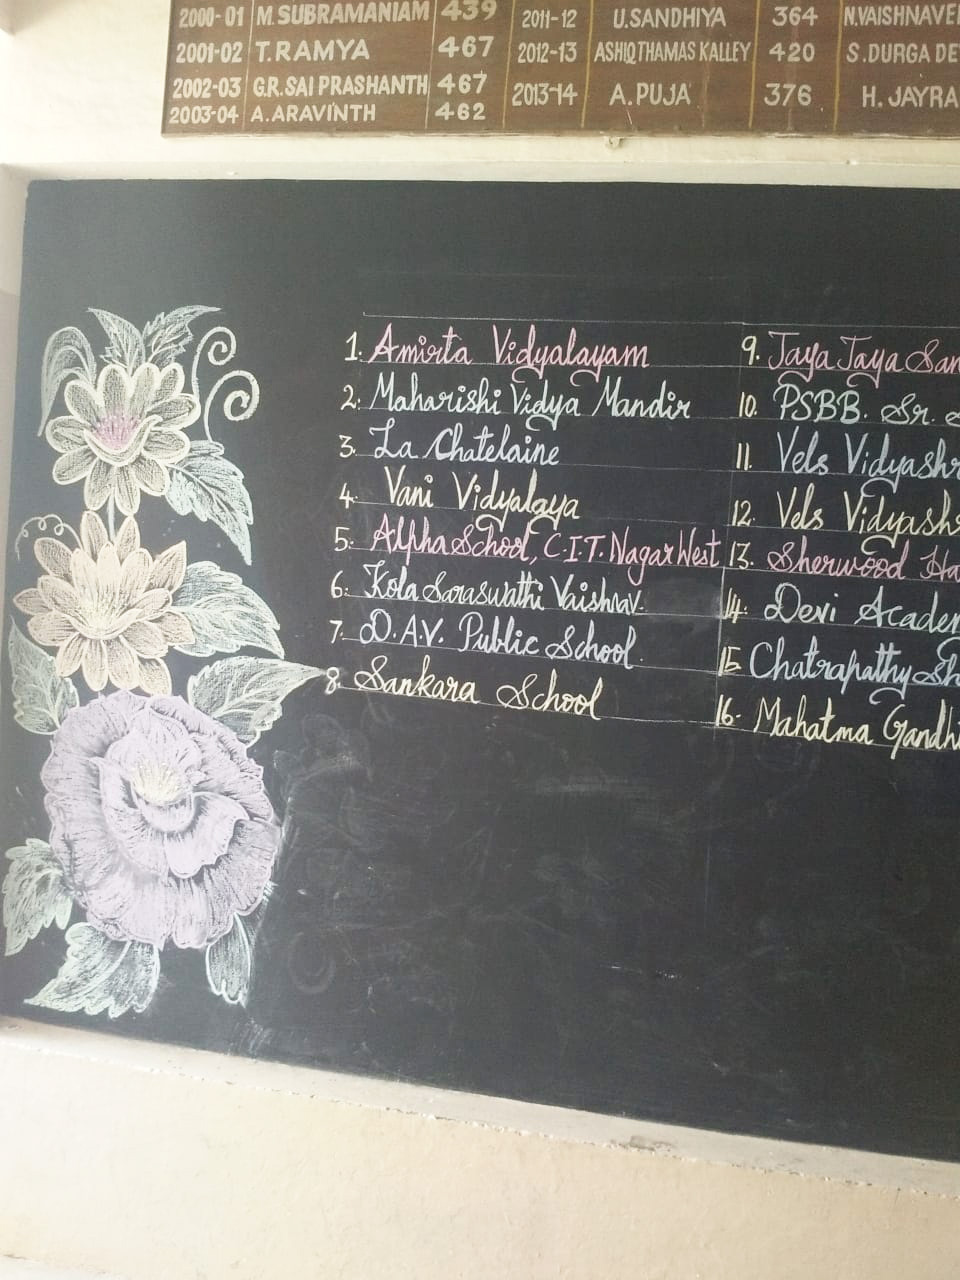 2000-01 M. SUBRAMANIAM 439 2011-12 U.SANDHIYA 364
2001-02 T. RAMYA 467 2012-13 ASHIQ THAMAS KALLEY 420 S. DURGA
2002-03 G.R. SAI PRASHANTH 467 2013-14 A. PUJA 376 H. JAYRA
2003-04 A. ARAVINTH 462
1. Amirta Vidyalayam
2. Maharishi Vidya Mandir
3. La Chatelaine
4. Vani Vidyalaya
5. Alpha School, C.I.T. Nagar West
6. Kola Saraswathi Vaishnav.
7. D.A.V. Public School.
8. Sankara School
9. Jaya Jaya San
10. PSBB. Sr. S
11. Vels Vidyashr
12. Vels Vidyash
13. Sherwood Ha
14. Devi Academ
15 Chatrapathy Sh
16. Mahatma Gandhi